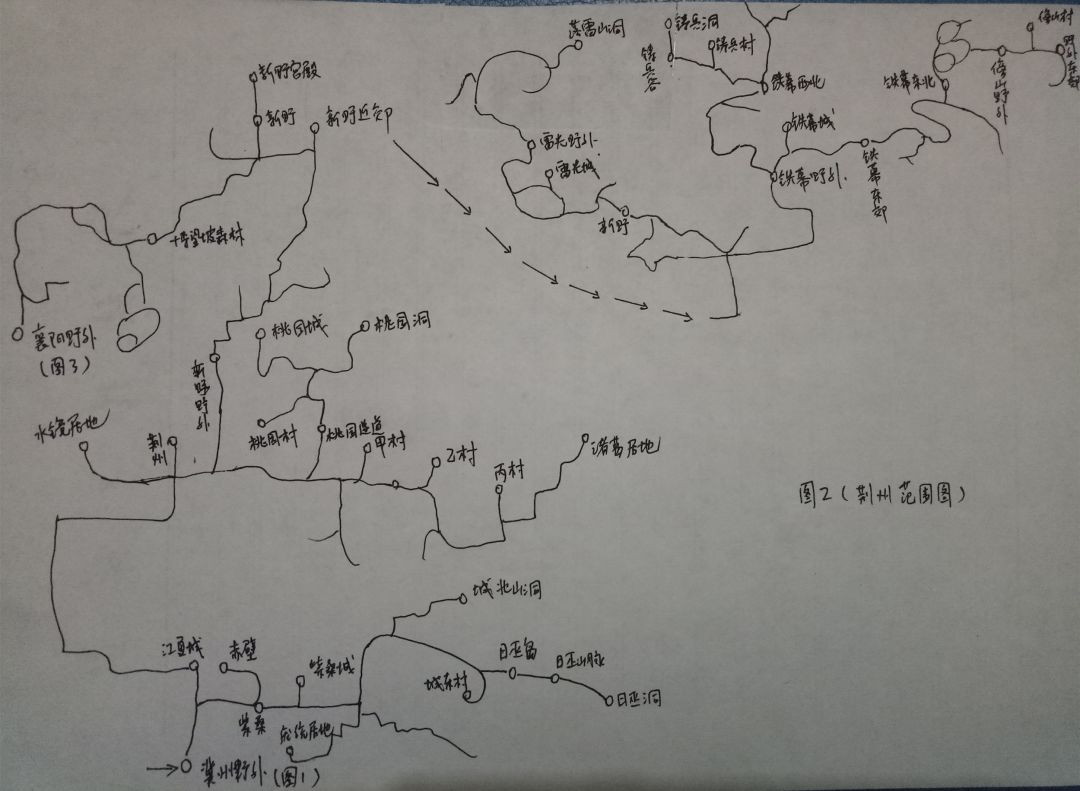 落雷山洞
铸兵洞
铸兵村
铸兵谷
铁幕西北
铁幕东北
倍山村
倍山野外
新野宫殿
新野
新野近郊
雷光野外
雷光城
铁幕城
铁幕野外
铁幕东郊
新野
博望坡森林
襄阳野外
(图3)
桃园城
桃园洞
新野野外
水镜居地
荆州
桃园村
桃园道
甲村
乙村
丙村
诸葛居地
图2(荆州范围图)
城北山洞
江夏城
赤壁
柴桑城
日巫岛
日巫山脉
城东村
日巫洞
柴桑
庞统居地
冀州野外(图1)